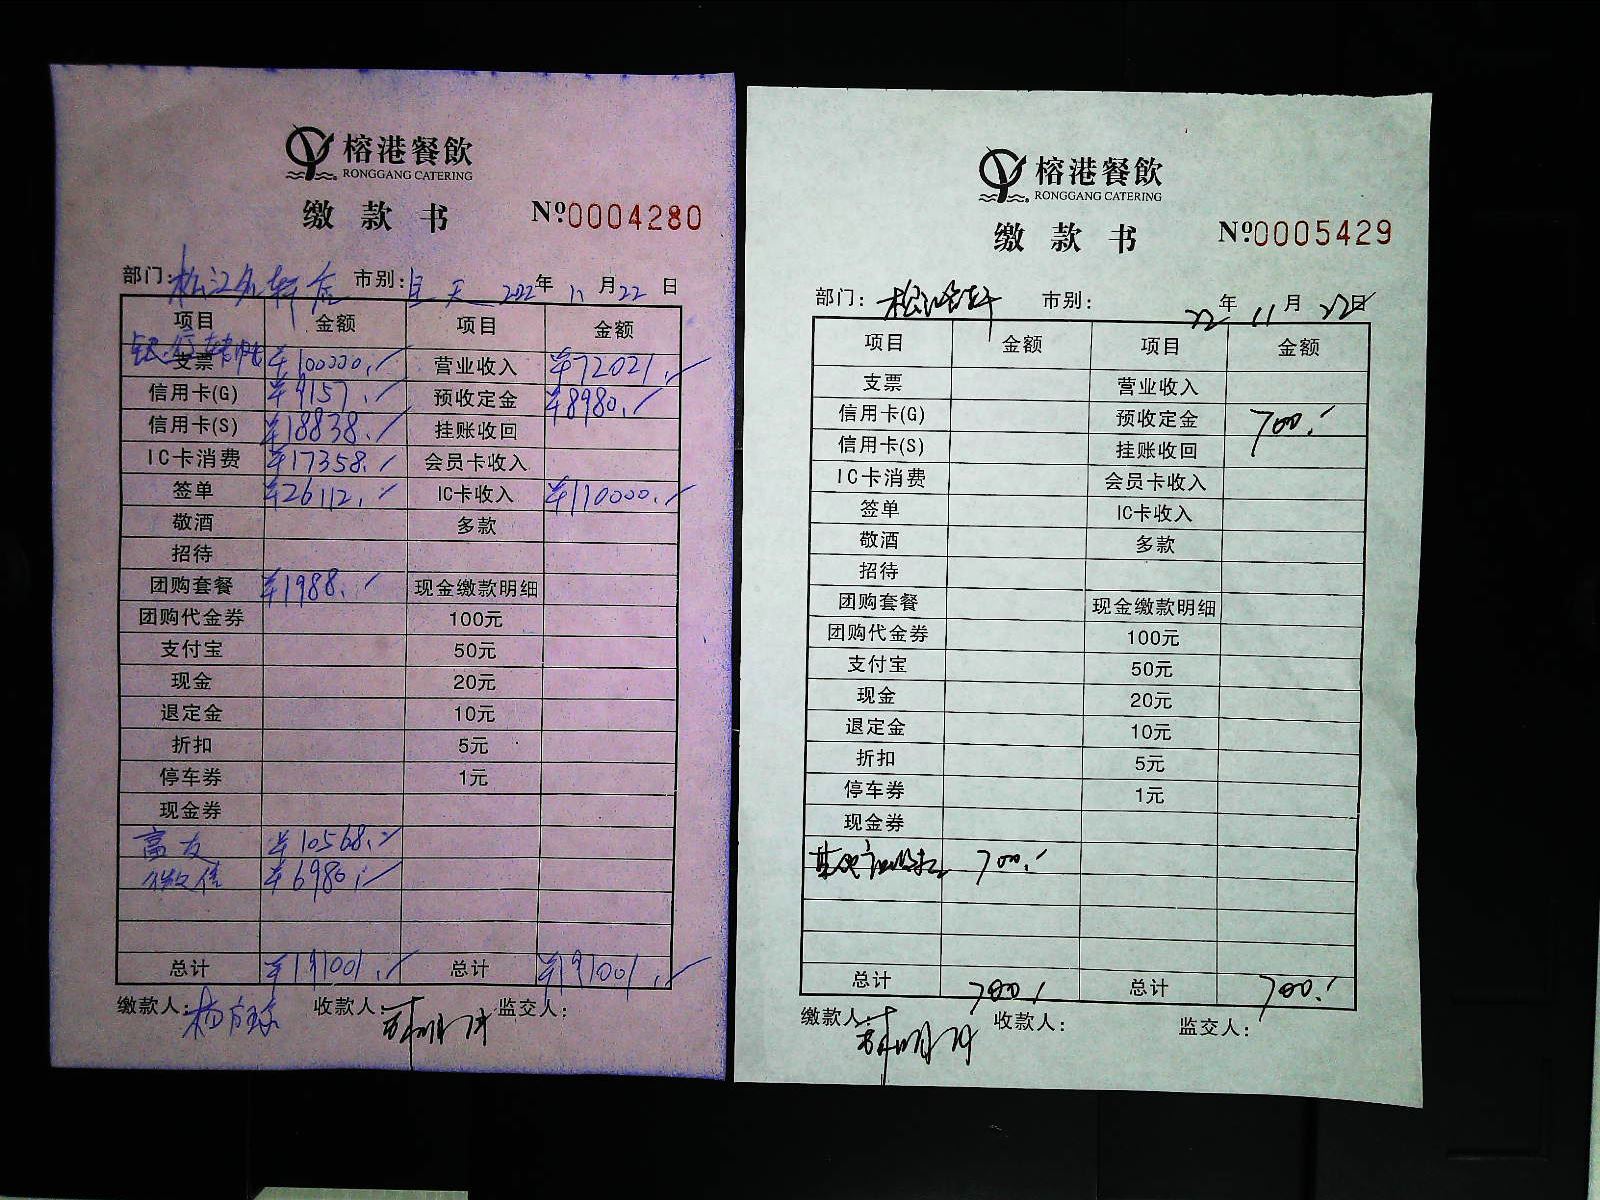 榕港餐飲
RONGGANG CATERING
缴款书 №0004280
部门: 市别: 全天 2022年 11月 22日
项目 金额 项目 金额
银行转帐
支票 ¥100000.- 营业收入 ¥72021.-
信用卡(G) ¥9157.- 预收定金 ¥8980.-
信用卡(S) ¥18838.- 挂账收回
IC卡消费 ¥17358.- 会员卡收入
签单 ¥26112.- IC卡收入 ¥110000.-
敬酒 多款
招待
团购套餐 ¥1988.- 现金缴款明细
团购代金券 100元
支付宝 50元
现金 20元
退定金 10元
折扣 5元
停车券 1元
现金券
¥10568.-
微信 ¥6980.-
总计 ¥191001.- 总计 ¥191001.-
缴款人: 收款人: 监交人:
榕港餐飲
RONGGANG CATERING
缴款书 №0005429
部门: 市别: 22年 11月 22日
项目 金额 项目 金额
支票 营业收入
信用卡(G) 预收定金 700.-
信用卡(S) 挂账收回
IC卡消费 会员卡收入
签单 IC卡收入
敬酒 多款
招待
团购套餐 现金缴款明细
团购代金券 100元
支付宝 50元
现金 20元
退定金 10元
折扣 5元
停车券 1元
现金券
700.-
总计 700.- 总计 700.-
缴款人: 收款人: 监交人: